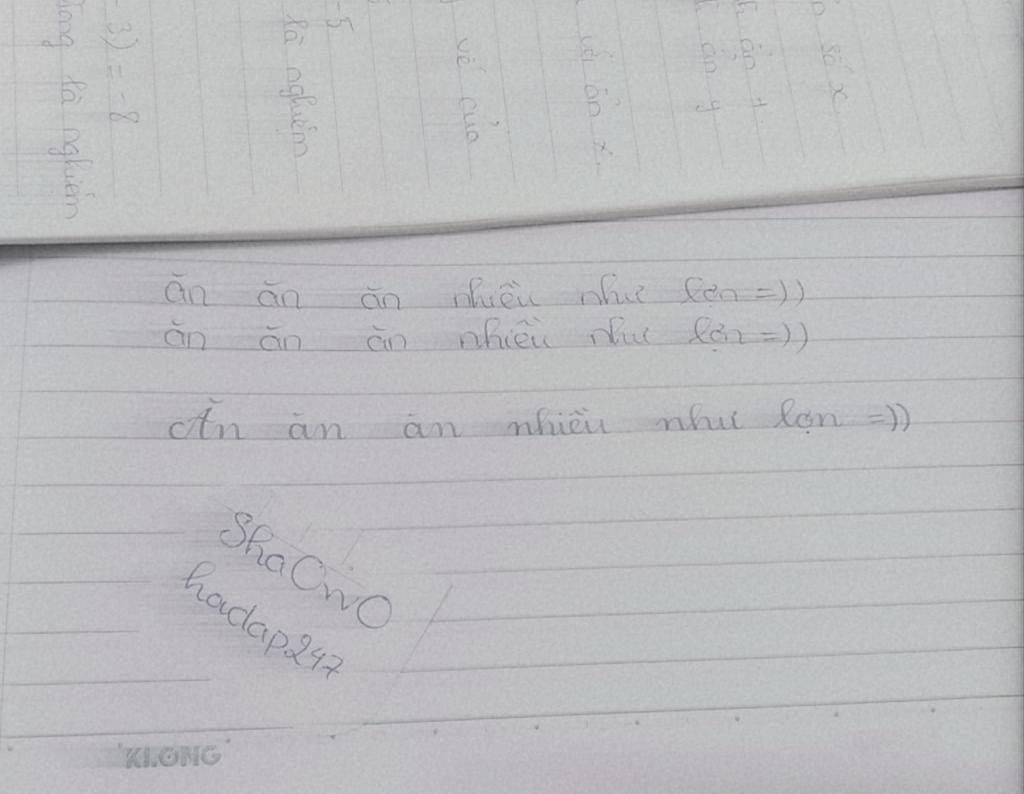 số x
ẩn t
ẩn y
với ẩn x
vế của
-5
là nghiệm
3) = -8
là nghiệm
ăn ăn ăn nhiều như lợn =))
ăn ăn ăn nhiều như lợn =))
Ăn ăn ăn nhiều như lợn =))
ShaOwO
hadap247
KLONG